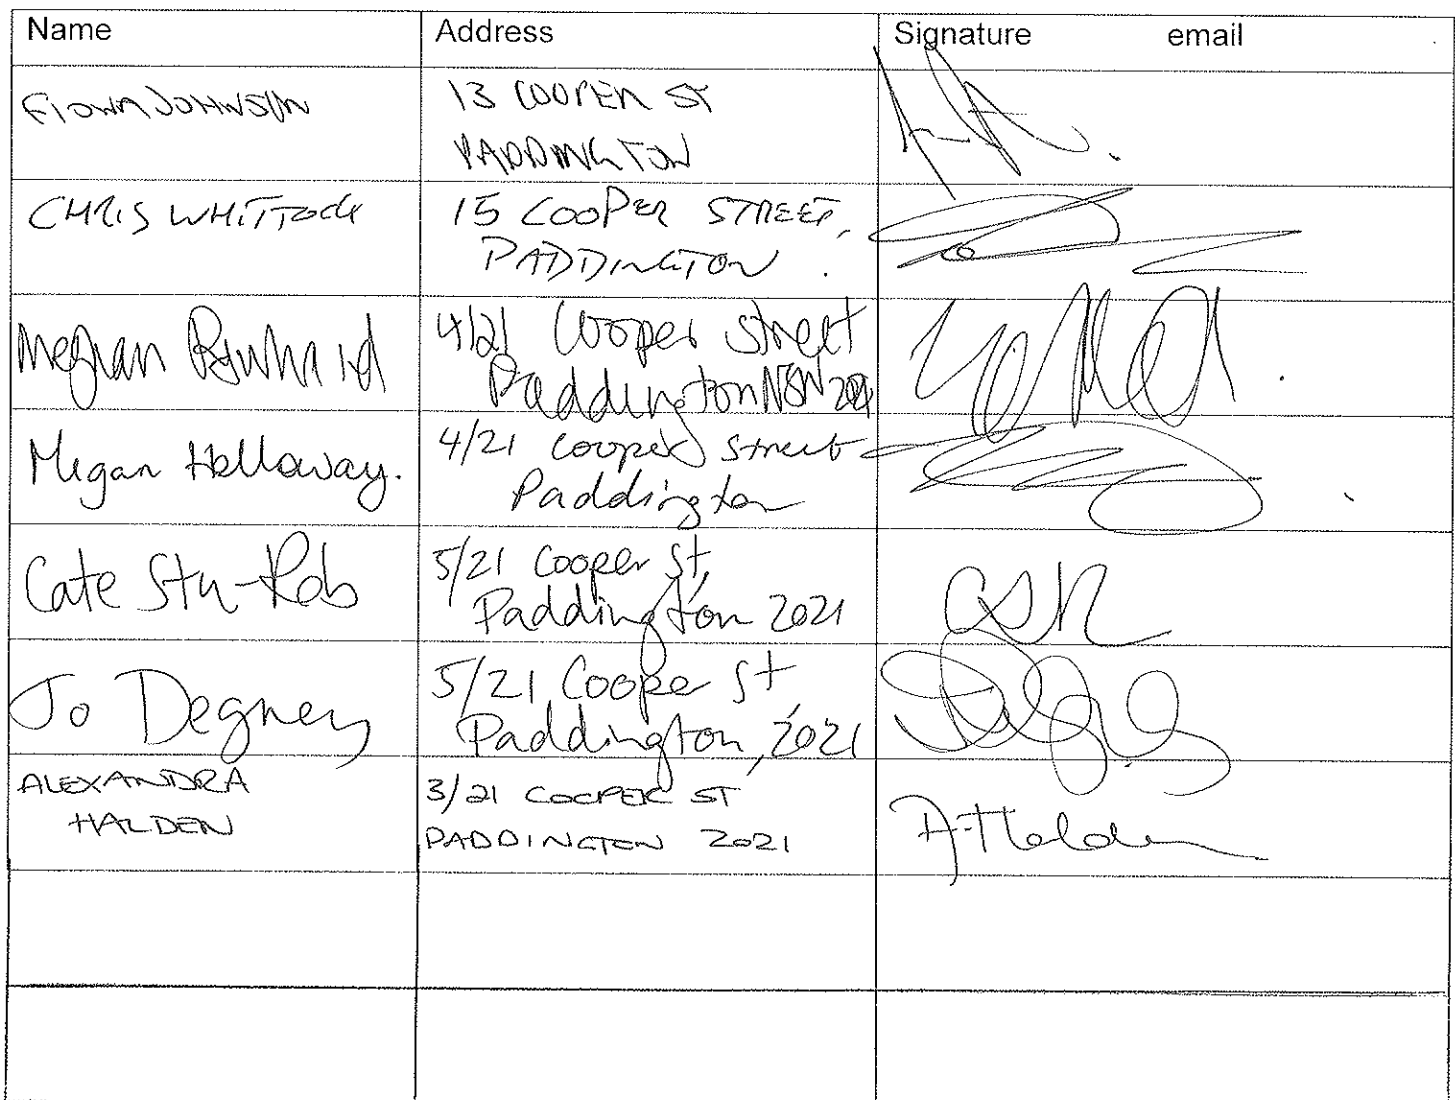 Name Address Signature email
FIONA JOHNSON 13 COOPER ST
PADDINGTON
CHRIS WHITTOCK 15 COOPER STREET,
PADDINGTON.
Meghan 4/21 Cooper Street
Paddington NSW
Megan Holloway. 4/21 Cooper Street
Paddington
Cate Stu-Rob 5/21 Cooper St,
Paddington 2021 CSR
Jo Degney 5/21 Cooper St,
Paddington, 2021
ALEXANDRA 3/21 COOPER ST
HALDEN PADDINGTON 2021 A Halden